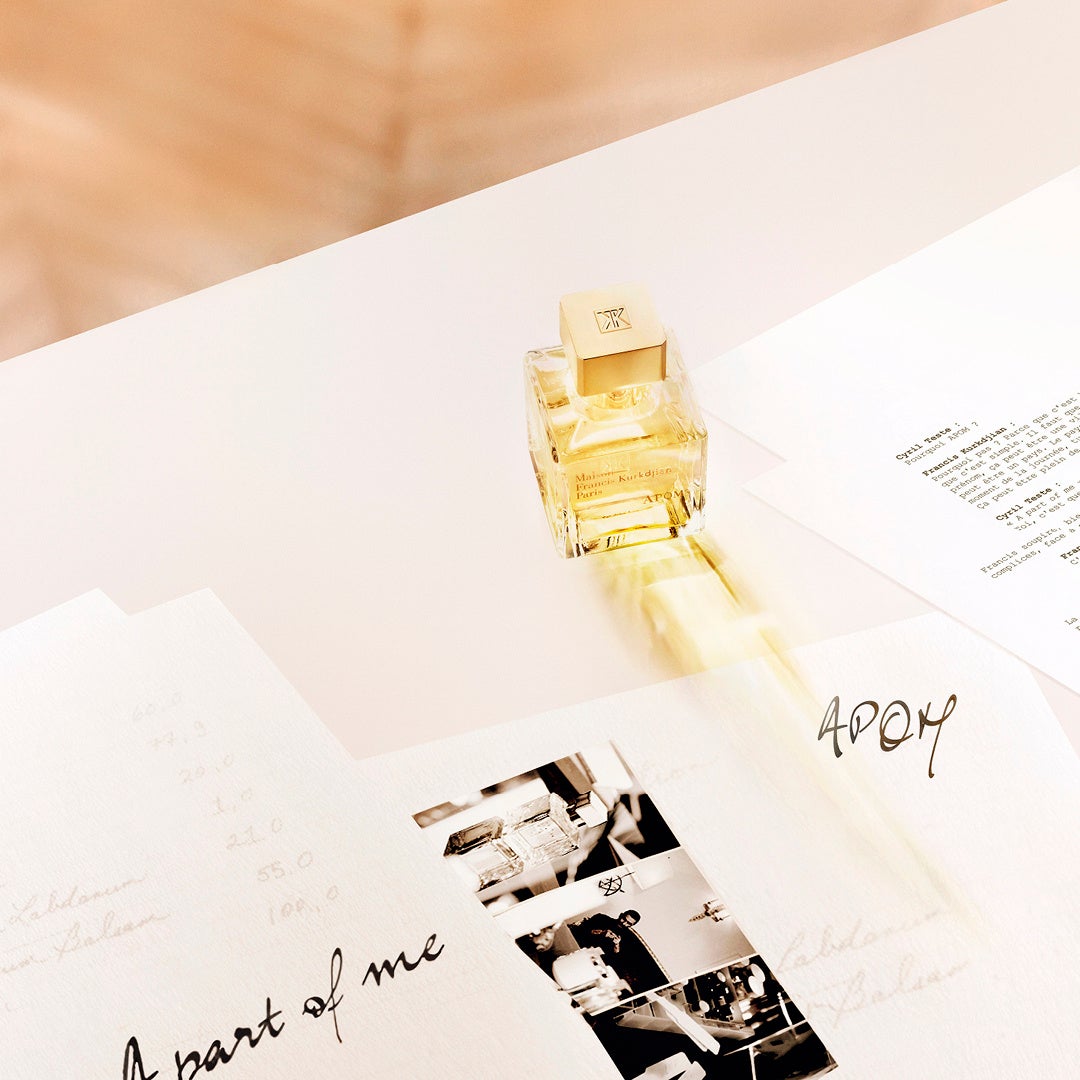 Maison
Francis Kurkdjian
Paris
APOM
Cyril Teste :
Pourquoi APOM ?
Francis Kurkdjian :
Pourquoi pas ? Parce que c'est
que c'est simple. Il faut que
prénom, ça peut être une vi
peut être un pays. Le pay
moment de la journée,
Ça peut être plein de
Cyril Teste :
« A part of me
toi, c'est que
Francis soupire, bie
complices, face à
Fran
C'
La
APOM
60.0
20.0
1.0
21.0
55.0
100.0
Labdanum
Balsam
A part of me
Labdanum
Balsam